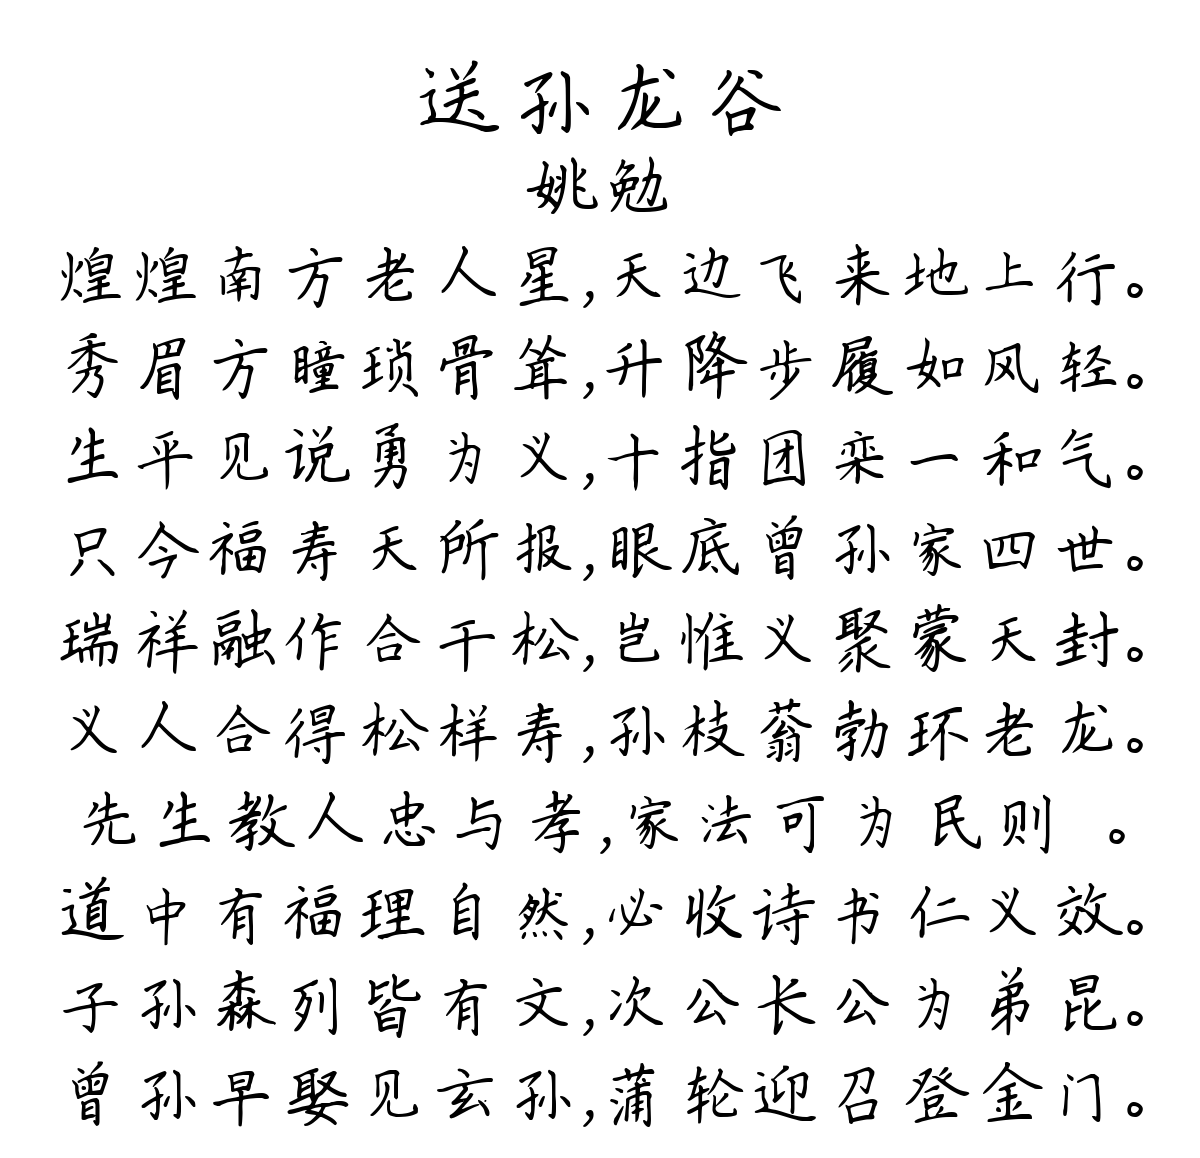 送孙龙谷
姚勉
煌煌南方老人星,天边飞来地上行。
秀眉方瞳琐骨耸,升降步履如风轻。
生平见说勇为义,十指团栾一和气。
只今福寿天所报,眼底曾孙家四世。
瑞祥融作合干松,岂惟义聚蒙天封。
义人合得松样寿,孙枝蓊勃环老龙。
先生教人忠与孝,家法可为民则 。
道中有福理自然,必收诗书仁义效。
子孙森列皆有文,次公长公为弟昆。
曾孙早娶见玄孙,蒲轮迎召登金门。